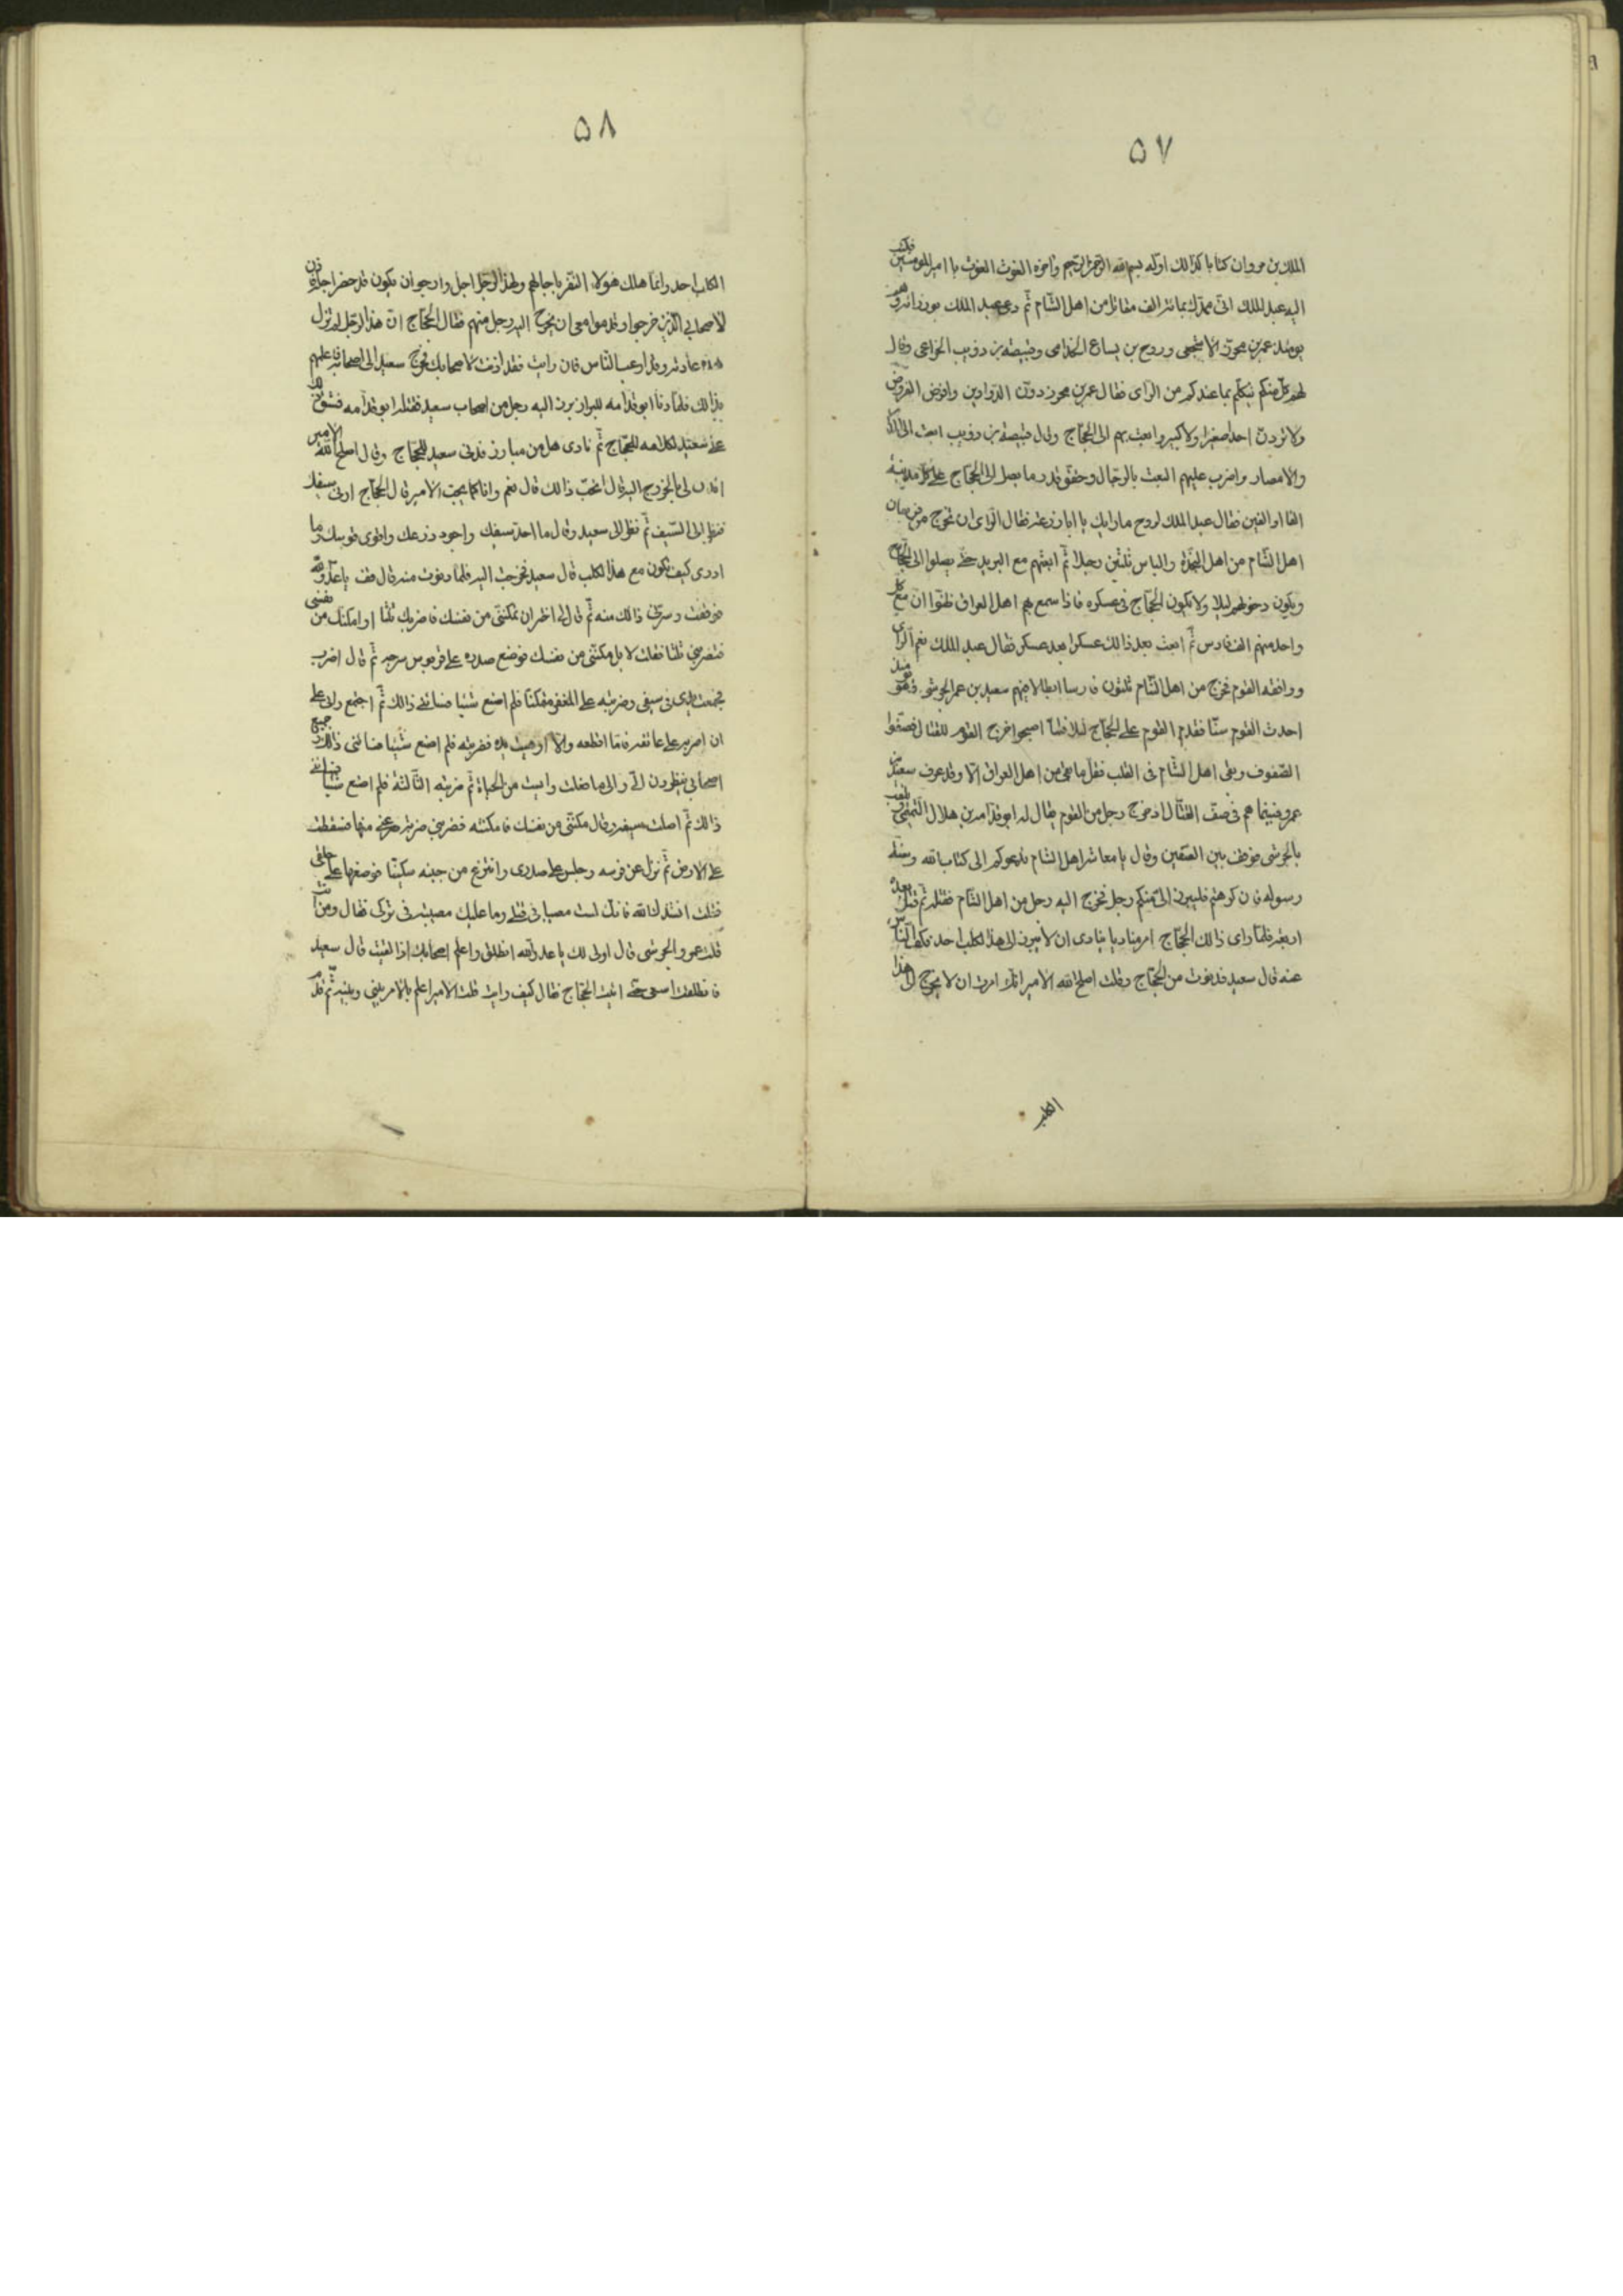 ٥٧
الملك بن مروان كتابا كذالك اوله بسم الله الرحمن الرحيم واخره الغوث الغوث يا امير المومنين فكتب
اليه عبد الملك انى ممدك بمائة الف مقاتل من اهل الشام ثم دعى عبد الملك بوزرائه وهم
يومئذ عمر بن محرز الاشجعى وروح بن الجذامى وقبيصة بن ذويب الخزاعى وقال
لهم كل منكم يتكلم بما عندكم من الراى فقال عمر بن محرز دون الدواوين وافرض الفروض
ولا تردن احدا صغيرا ولا كبيرا وابعث بهم الى الحجاج وقال قبيصة بن ذويب ابعث الى
والامصار واضرب عليهم البعث بالرجال وحقق قدر ما يصل الى الحجاج على كل مدينة
الفا او الفين فقال عبد الملك لروح ما رايك يا ابا زرعة فقال الراى ان تخرج من فرسان
اهل الشام من اهل النجدة والباس ثلثين رجلا ثم ابعثهم مع البريد حتى يصلوا الى الحجاج
ويكون دخولهم ليلا ولا يكون الحجاج فى عسكره فاذا سمع بهم اهل العراق ظنوا ان مع كل
واحد منهم الف فارس ثم ابعث بعد ذالك عسكرا بعد عسكر فقال عبد الملك نعم الراى
ووافقه القوم فخرج من اهل الشام ثلثون فارسا ابطالا فيهم سعيد بن عمر الجرشى وهو يومئذ
احدث القوم سنا فقدم القوم على الحجاج ليلا فلما اصبحوا خرج القوم للقتال فصفوا
الصفوف وبقى اهل الشام فى القلب فقل ما بقى من اهل العراق الا وقد عرف سعيد بن
عمرو فبينما هم فى صف القتال اذ خرج رجل من القوم يقال له ابو قدامه بن هلال التميمى يلقب
بالجرشى فوقف بين الصفين وقال يا معاشر اهل الشام ندعوكم الى كتاب الله وسنة
رسوله فان كرهتم فليبرز الى منكم رجل فخرج اليه رجل من اهل الشام فقتله ثم قتل بعده
اربعة فلما راى ذالك الحجاج امر مناديا ينادى ان لا يبرز الى هذا الكلب احد فكف الناس
عنه قال سعيد فدنوت من الحجاج وقلت اصلح الله الامير انك امرت ان لا يخرج الى هذا
الكلب
٥٨
الكلب احد وانما هلك هولاء النفر باجالهم ولهذا الرجل اجل وارجو ان يكون قد حضر اجله فاذن
لاصحابى الذين خرجوا وقدموا معى ان يخرج اليه رجل منهم فقال الحجاج ان هذا الرجل لم تزل
هذه عادته وقد ارعب الناس فان رايت فقد اذنت لاصحابك فخرج سعيد الى اصحابه فاعلمهم
بذالك فلما دنا ابو قدامه للبراز برز اليه رجل من اصحاب سعيد فقتله ابو قدامه فشق ذلك
على سعيد لكلامه للحجاج ثم نادى هل من مبارز فدنى سعيد للحجاج وقال اصلح الله الامير
ائذن لى بالخروج اليه قال اتحب ذالك قال نعم وانا كما يحب الامير قال الحجاج ارنى سيفك
فنظر الى السيف ثم نظر الى سعيد وقال ما احد سيفك واجود درعك واقوى فرسك وما
ادرى كيف تكون مع هذا الكلب قال سعيد فخرجت اليه فلما دنوت منه قال قف يا عدو الله
فوقفت وسرنى ذالك منه ثم قال لى اختر ان تمكننى من نفسك فاضربك ثلثا او امكنك من نفسى
فتضربنى ثلثا فقلت لا بل مكننى من نفسك فوضع صدره على قربوس سرجه ثم قال اضرب
فجمعت يدى فى سيفى وضربته على المغفر متمكنا فلم اصنع شيئا فساءنى ذالك ثم اجتمع رايى على
ان اضربه على عاتقه فاما اقطعه والا اوهيت يده فضربته فلم اصنع شيئا فساءنى ذالك وجميع
اصحابى ينظرون الى والى ما فعلت وايست من الحياة ثم ضربته الثالثة فلم اصنع شيئا فساءنى
ذالك ثم اصلت سيفه وقال مكننى من نفسك فامكنته فضربنى ضربة صرعنى منها فسقطت
على الارض ثم نزل عن فرسه وجلس على صدرى وانتزع من جنبه سكينا فوضعها على حلقى
فقلت انشدك الله فانك لست مصيبا فى قتلى وما عليك مصيبة فى تركى فقال ومن انت
قلت عمرو الجرشى قال اولى لك يا عدو الله انطلق واعلم اصحابك اذا لقيت قال سعيد
فانطلقت اسعى حتى اتيت الحجاج فقال كيف رايت قلت الامير اعلم بالامر ثم قد